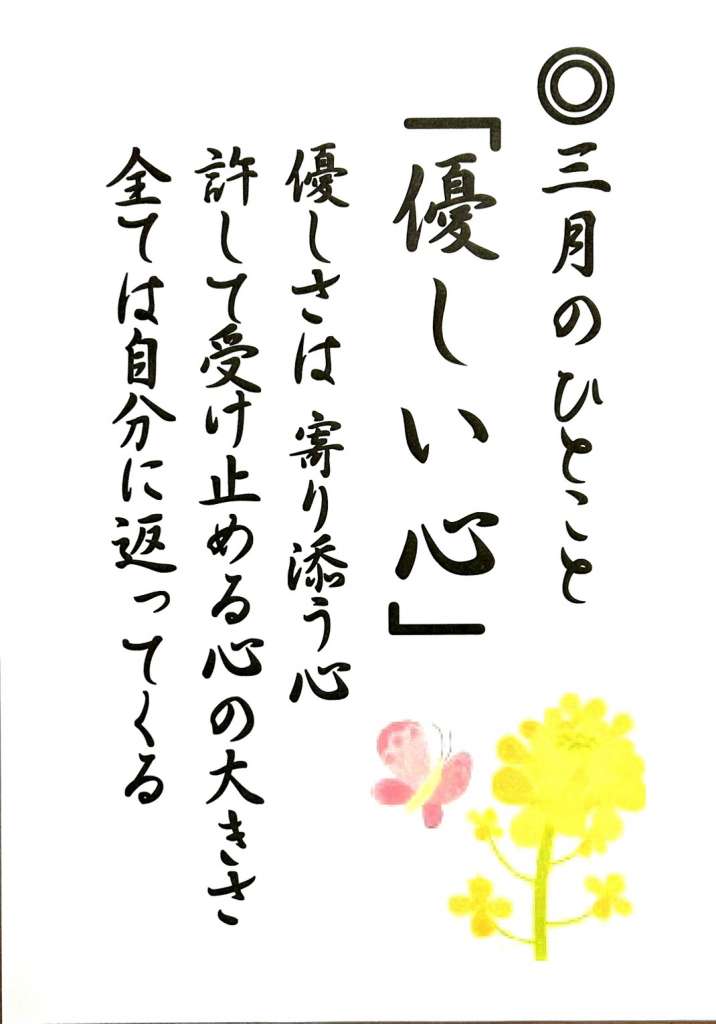 ◎三月のひとこと
「優しい心」
優しさは 寄り添う心
許して受け止める心の大きさ
全ては自分に返ってくる